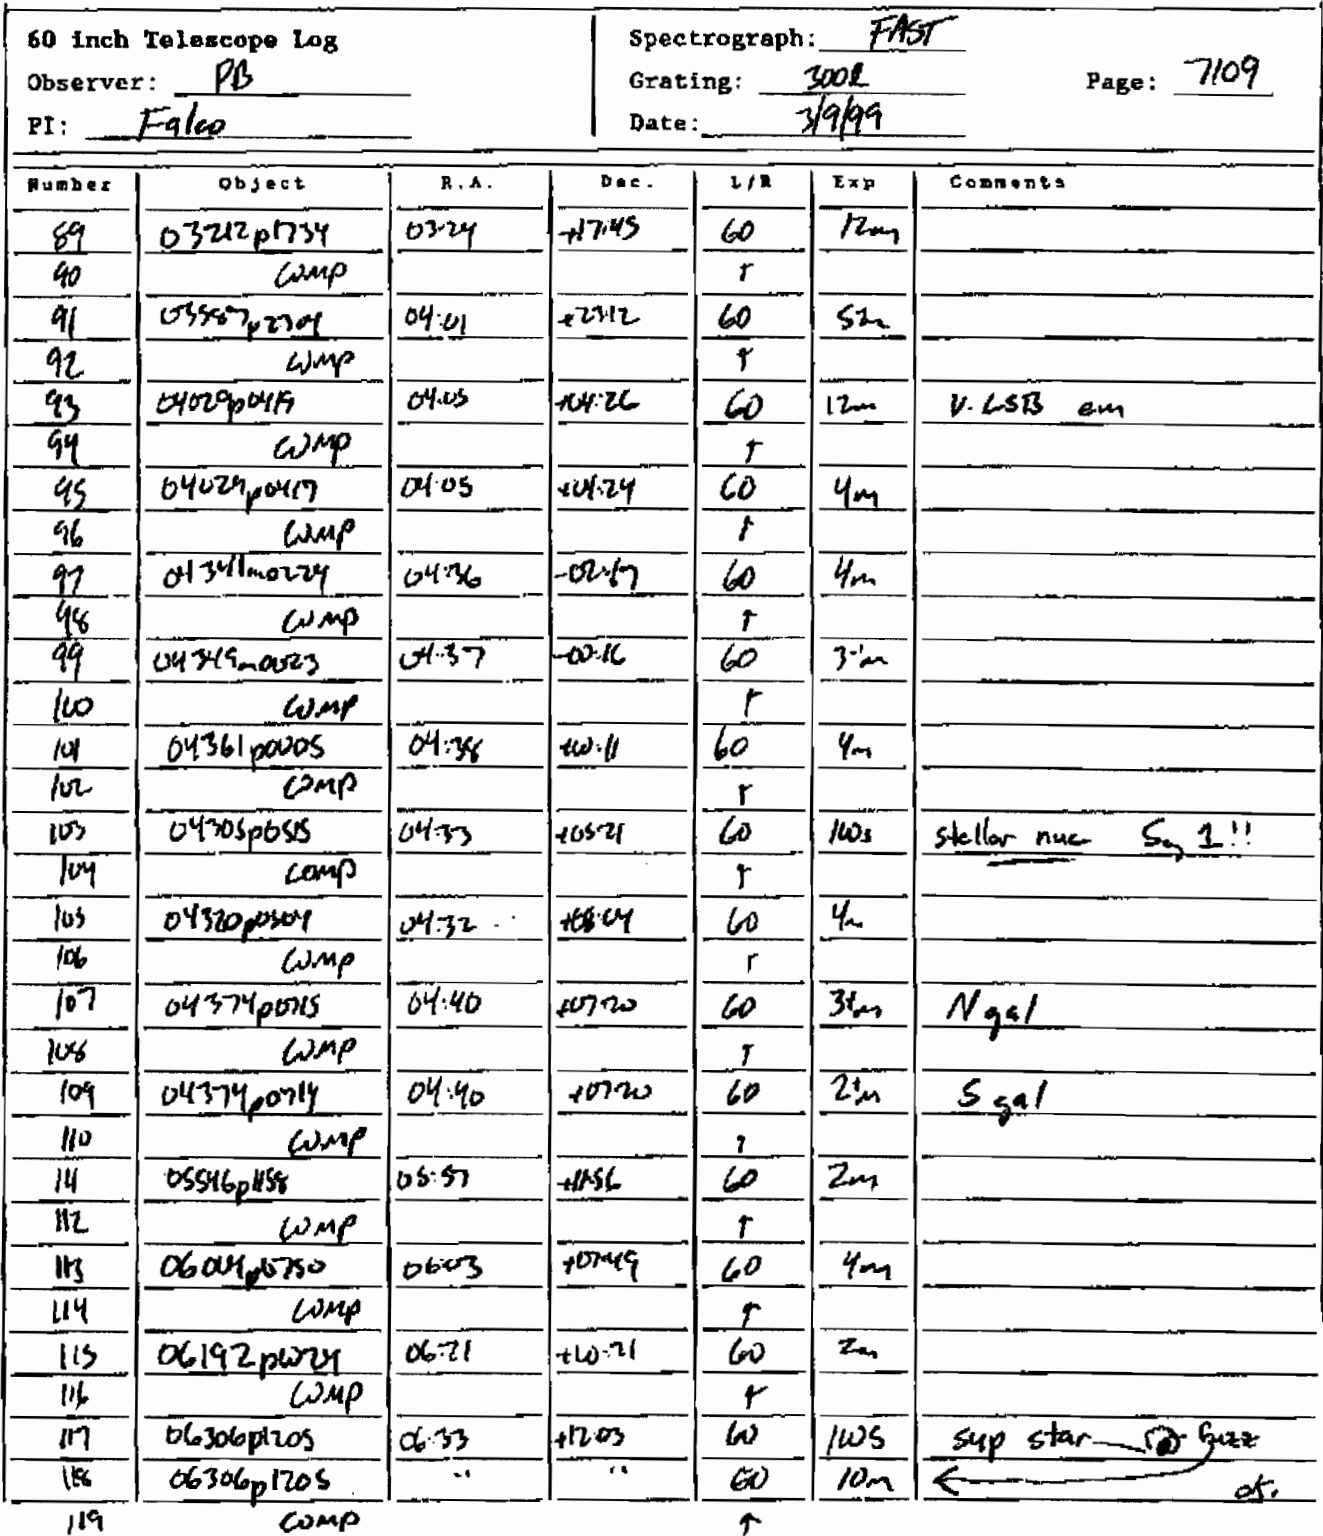 60 inch Telescope Log
Observer: PB
PI: Falco
Spectrograph: FAST
Grating: 300l
Date: 3/9/99
Page: 7109
Number Object R.A. Dec. L/R Exp Comments
89 03212p1734 03:24 +17:45 60 12m
90 COMP ↑
91 03587p2304 04:01 +23:12 60
92 COMP ↑
93 04029p0419 04:05 +04:26 60 12m V. LSB em
94 COMP ↑
95 04029p0417 04:05 +04:24 60 4m
96 COMP ↑
97 04341m0224 04:36 60 4m
98 COMP ↑
99 04349m0023 04:37 -00:16 60 3+m
100 COMP ↑
101 04361p0005 04:38 +00:11 60 4m
102 COMP ↑
103 04305p0515 04:33 +05:21 60 100s stellar nuc Sy 1!!
104 COMP ↑
105 04:32 60 4m
106 COMP ↑
107 04374p0715 04:40 +07:20 60 3+m N gal
108 COMP ↑
109 04374p0714 04:40 +07:20 60 2+m S gal
110 COMP ↑
111 05546p1158 05:57 60 2m
112 COMP ↑
113 06004p0750 06:03 +07:49 60 4m
114 COMP ↑
115 06192p1024 06:21 +10:21 60 2m
116 COMP ↑
117 06306p1205 06:33 +12:03 60 100s sup star buzz
118 06306p1205 " " 60 10m ok.
119 COMP ↑